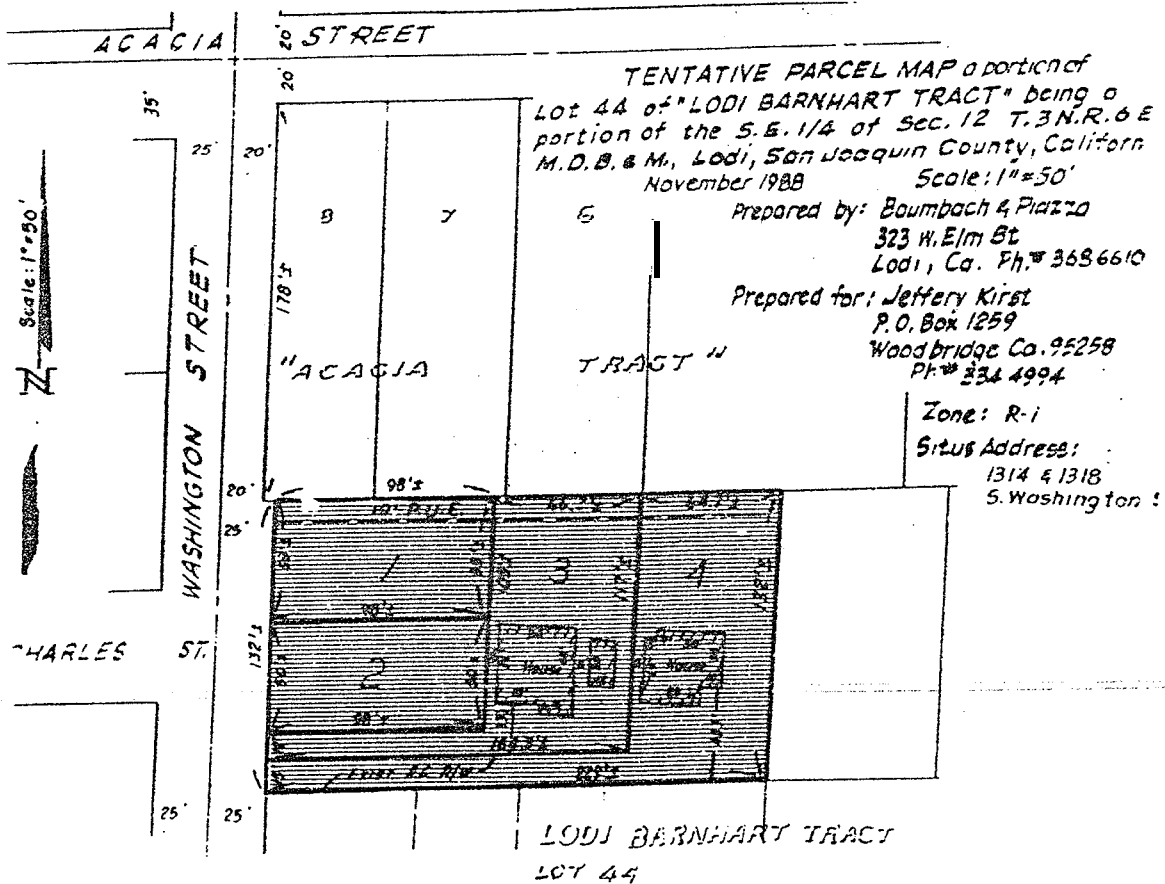 ACACIA STREET
20'
20'
35'
25'
20'
TENTATIVE PARCEL MAP a portion of
Lot 44 of "LODI BARNHART TRACT" being a
portion of the S.E. 1/4 of Sec. 12 T.3N.R.6E
M.D.B.& M., Lodi, San Joaquin County, Californ
November 1988
Scale: 1"=50'
Prepared by: Baumbach & Piazza
323 W. Elm St
Lodi, Ca. Ph.# 3686610
Prepared for: Jeffery Kirst
P.O. Box 1259
Woodbridge Ca. 95258
Ph# 334 4994
Zone: R-1
Situs Address:
1314 & 1318
S. Washington S
Scale: 1"=50'
Z
WASHINGTON STREET
8 7 6
178'±
"ACACIA TRACT"
20'
25'
98'±
10' P.U.E.
1
3
4
132'±
98'±
CHARLES ST.
132'±
2
House
House
50'±
98'±
25'
25'
LODI BARNHART TRACT
LOT 44